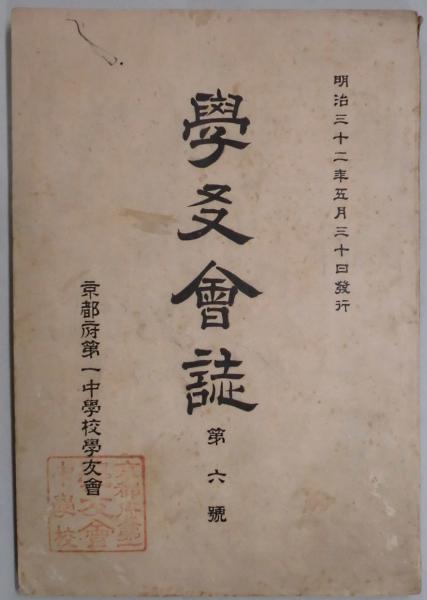 明治三十二年五月三十日發行
學友會誌
第六號
京都府第一中學校學友會
京都府第一
學友會
中學校